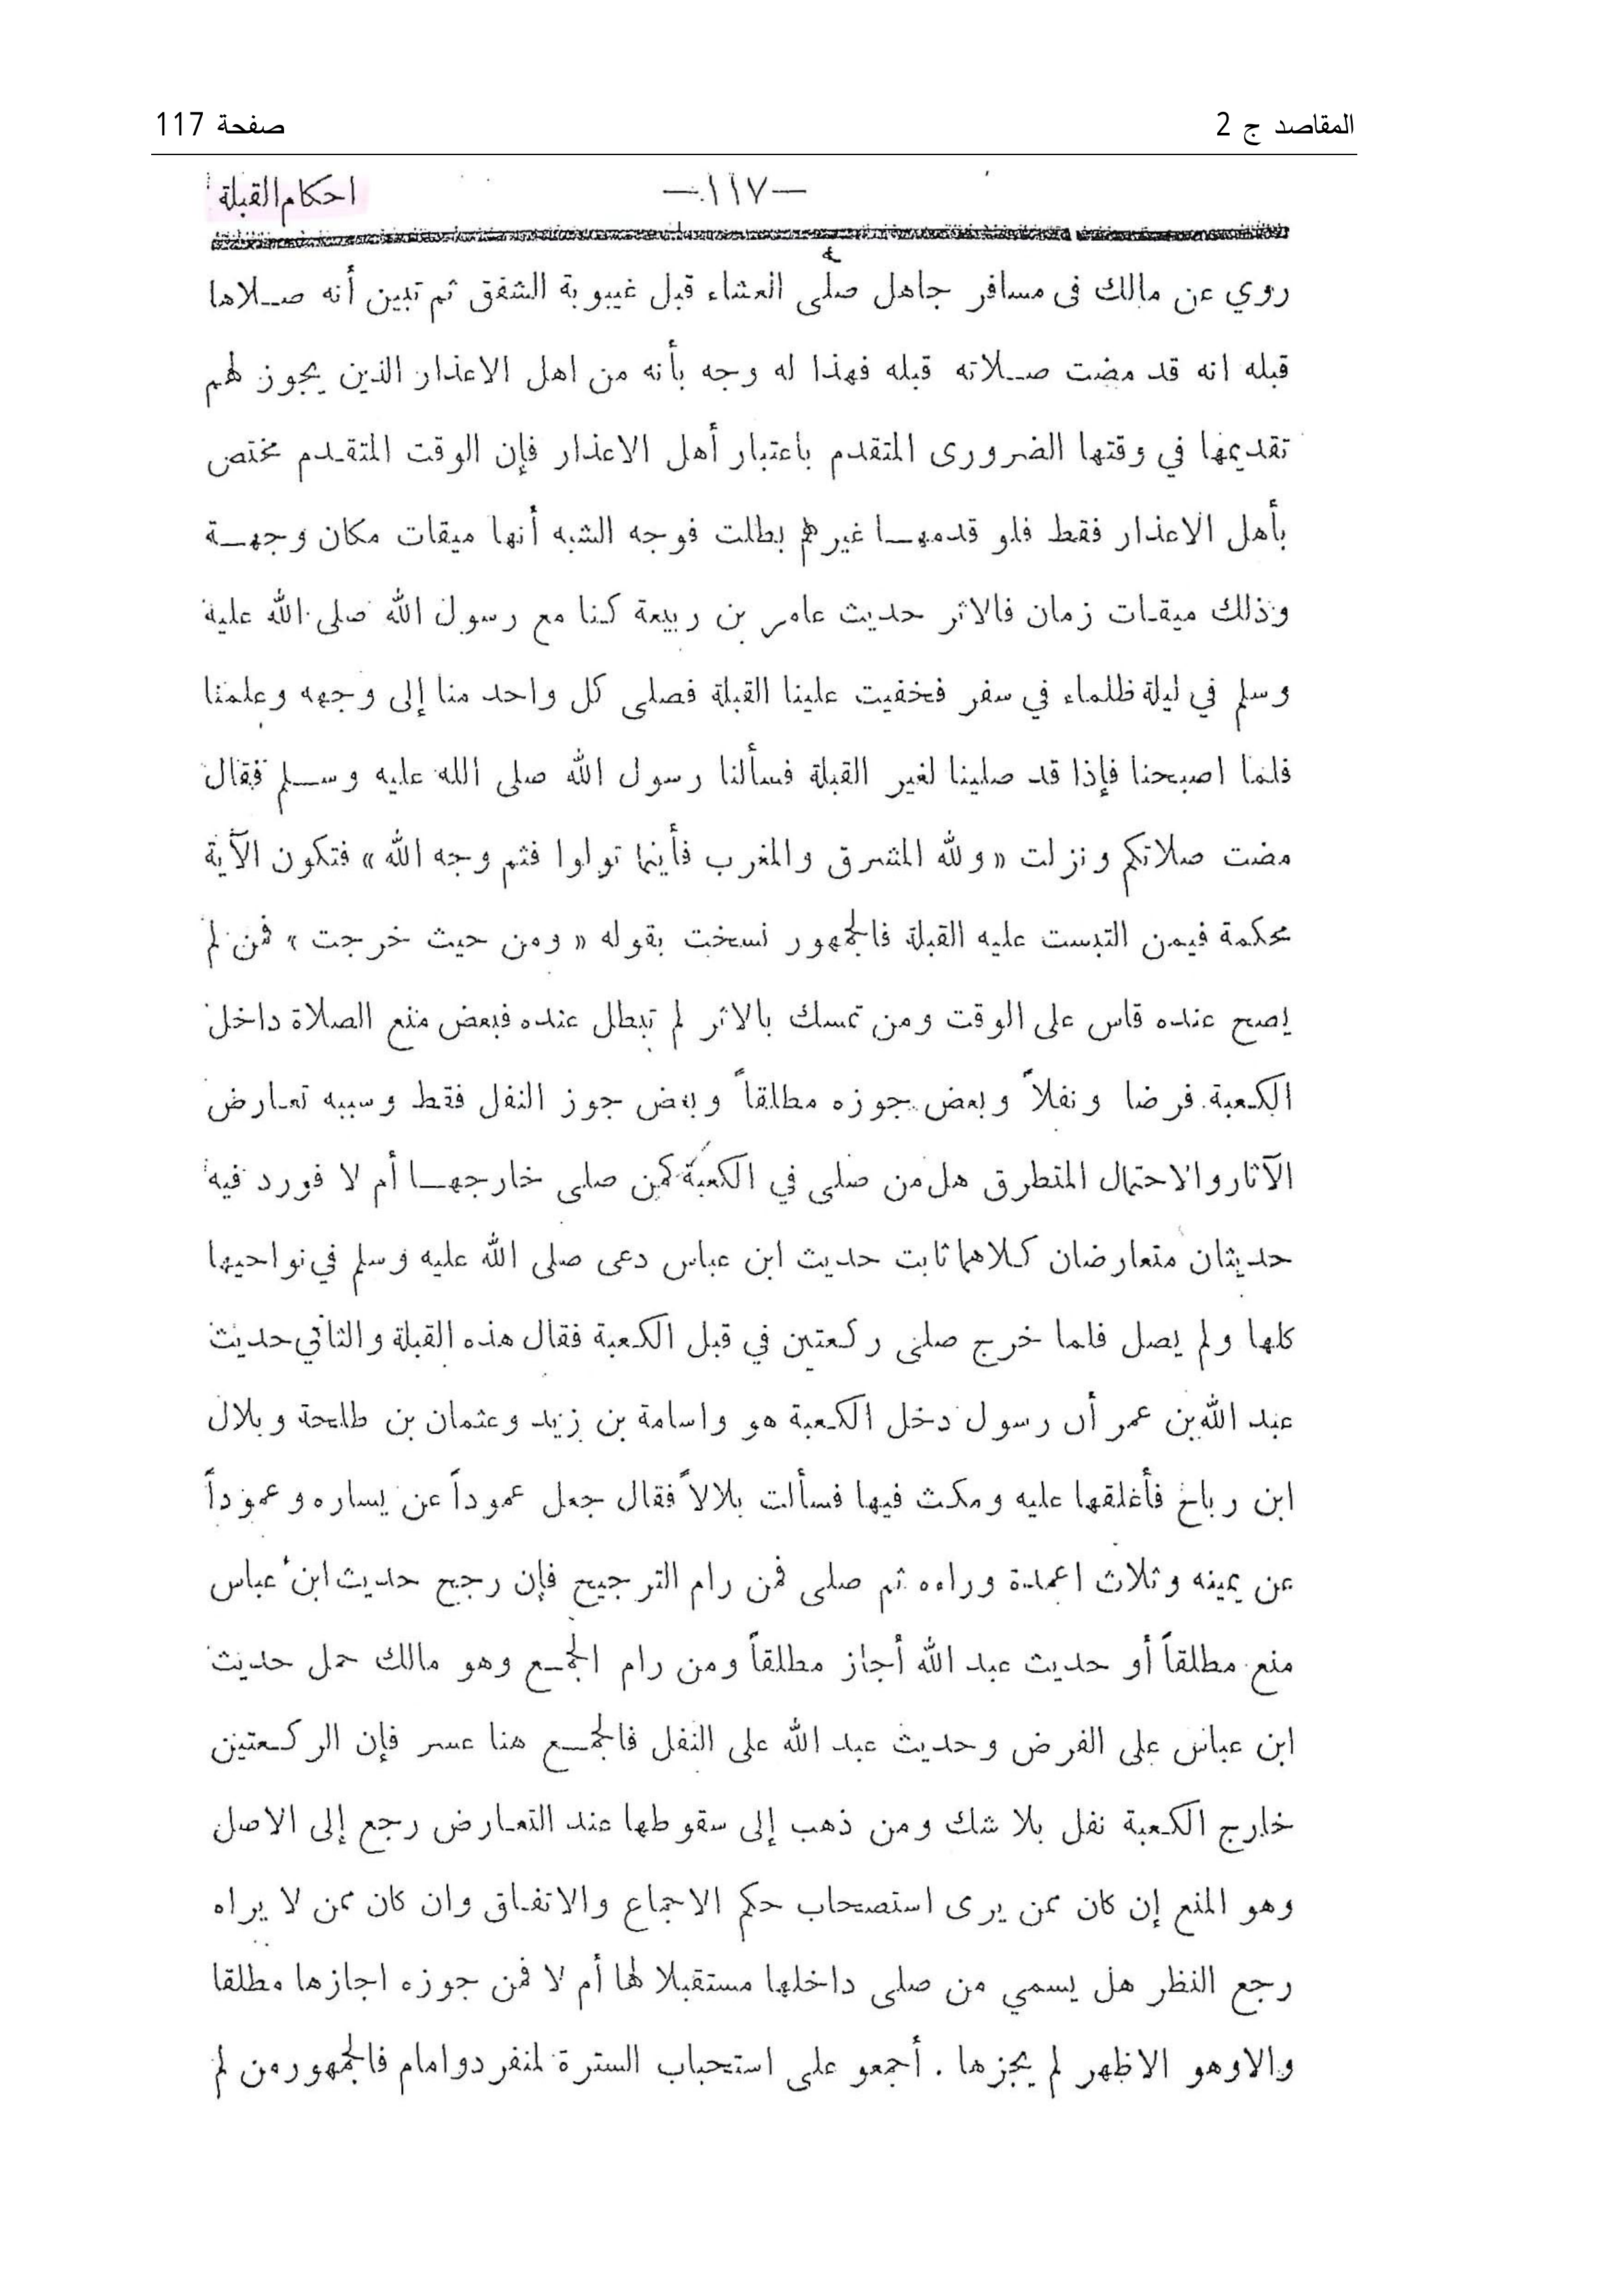 المقاصد ج 2
صفحة 117
—١١٧—
احكام القبلة
روي عن مالك فى مسافر جاهل صلى العشاء قبل غيبوبة الشفق ثم تبين أنه صلاها
قبله انه قد مضت صلاته قبله فهذا له وجه بأنه من اهل الاعذار الذين يجوز لهم
تقديمها في وقتها الضرورى المتقدم باعتبار أهل الاعذار فإن الوقت المتقدم مختص
بأهل الاعذار فقط فلو قدمها غيرهم بطلت فوجه الشبه أنها ميقات مكان وجهة
وذلك ميقات زمان فالاثر حديث عامر بن ربيعة كنا مع رسول الله صلى الله علية
وسلم في ليلة ظلماء في سفر فخفيت علينا القبلة فصلى كل واحد منا إلى وجهه وعلمنا
فلما اصبحنا فإذا قد صلينا لغير القبلة فسألنا رسول الله صلى الله عليه وسلم فقال
مضت صلاتكم ونزلت « ولله المشرق والمغرب فأينما تولوا فثم وجه الله » فتكون الآية
محكمة فيمن التبست عليه القبلة فالجمهور نسخت بقوله « ومن حيث خرجت » فمن لم
يصح عنده قاس على الوقت ومن تمسك بالاثر لم تبطل عنده فبعض منع الصلاة داخل
الكعبة فرضا ونفلاً وبعض جوزه مطلقاً وبعض جوز النفل فقط وسببه تعارض
الآثار والاحتمال المتطرق هل من صلى في الكعبة كمن صلى خارجها أم لا فورد فيه
حديثان متعارضان كلاهما ثابت حديث ابن عباس دعى صلى الله عليه وسلم في نواحيها
كلها ولم يصل فلما خرج صلى ركعتين في قبل الكعبة فقال هذه القبلة والثاني حديث
عبد الله بن عمر أن رسول دخل الكعبة هو واسامة بن زيد وعثمان بن طلحة وبلال
ابن رباح فأغلقها عليه ومكث فيها فسألت بلالاً فقال جعل عموداً عن يساره وعموداً
عن يمينه وثلاث اعمدة وراءه ثم صلى فمن رام الترجيح فإن رجح حديث ابن عباس
منع مطلقاً أو حديث عبد الله أجاز مطلقاً ومن رام الجمع وهو مالك حمل حديث
ابن عباس على الفرض وحديث عبد الله على النفل فالجمع هنا عسر فإن الركعتين
خارج الكعبة نفل بلا شك ومن ذهب إلى سقوطها عند التعارض رجع إلى الاصل
وهو المنع إن كان ممن يرى استصحاب حكم الاجماع والاتفاق وان كان ممن لا يراه
رجع النظر هل يسمي من صلى داخلها مستقبلا لها أم لا فمن جوزه اجازها مطلقا
والا وهو الاظهر لم يجزها . أجمعو على استحباب السترة لمنفرد وامام فالجمهور من لم